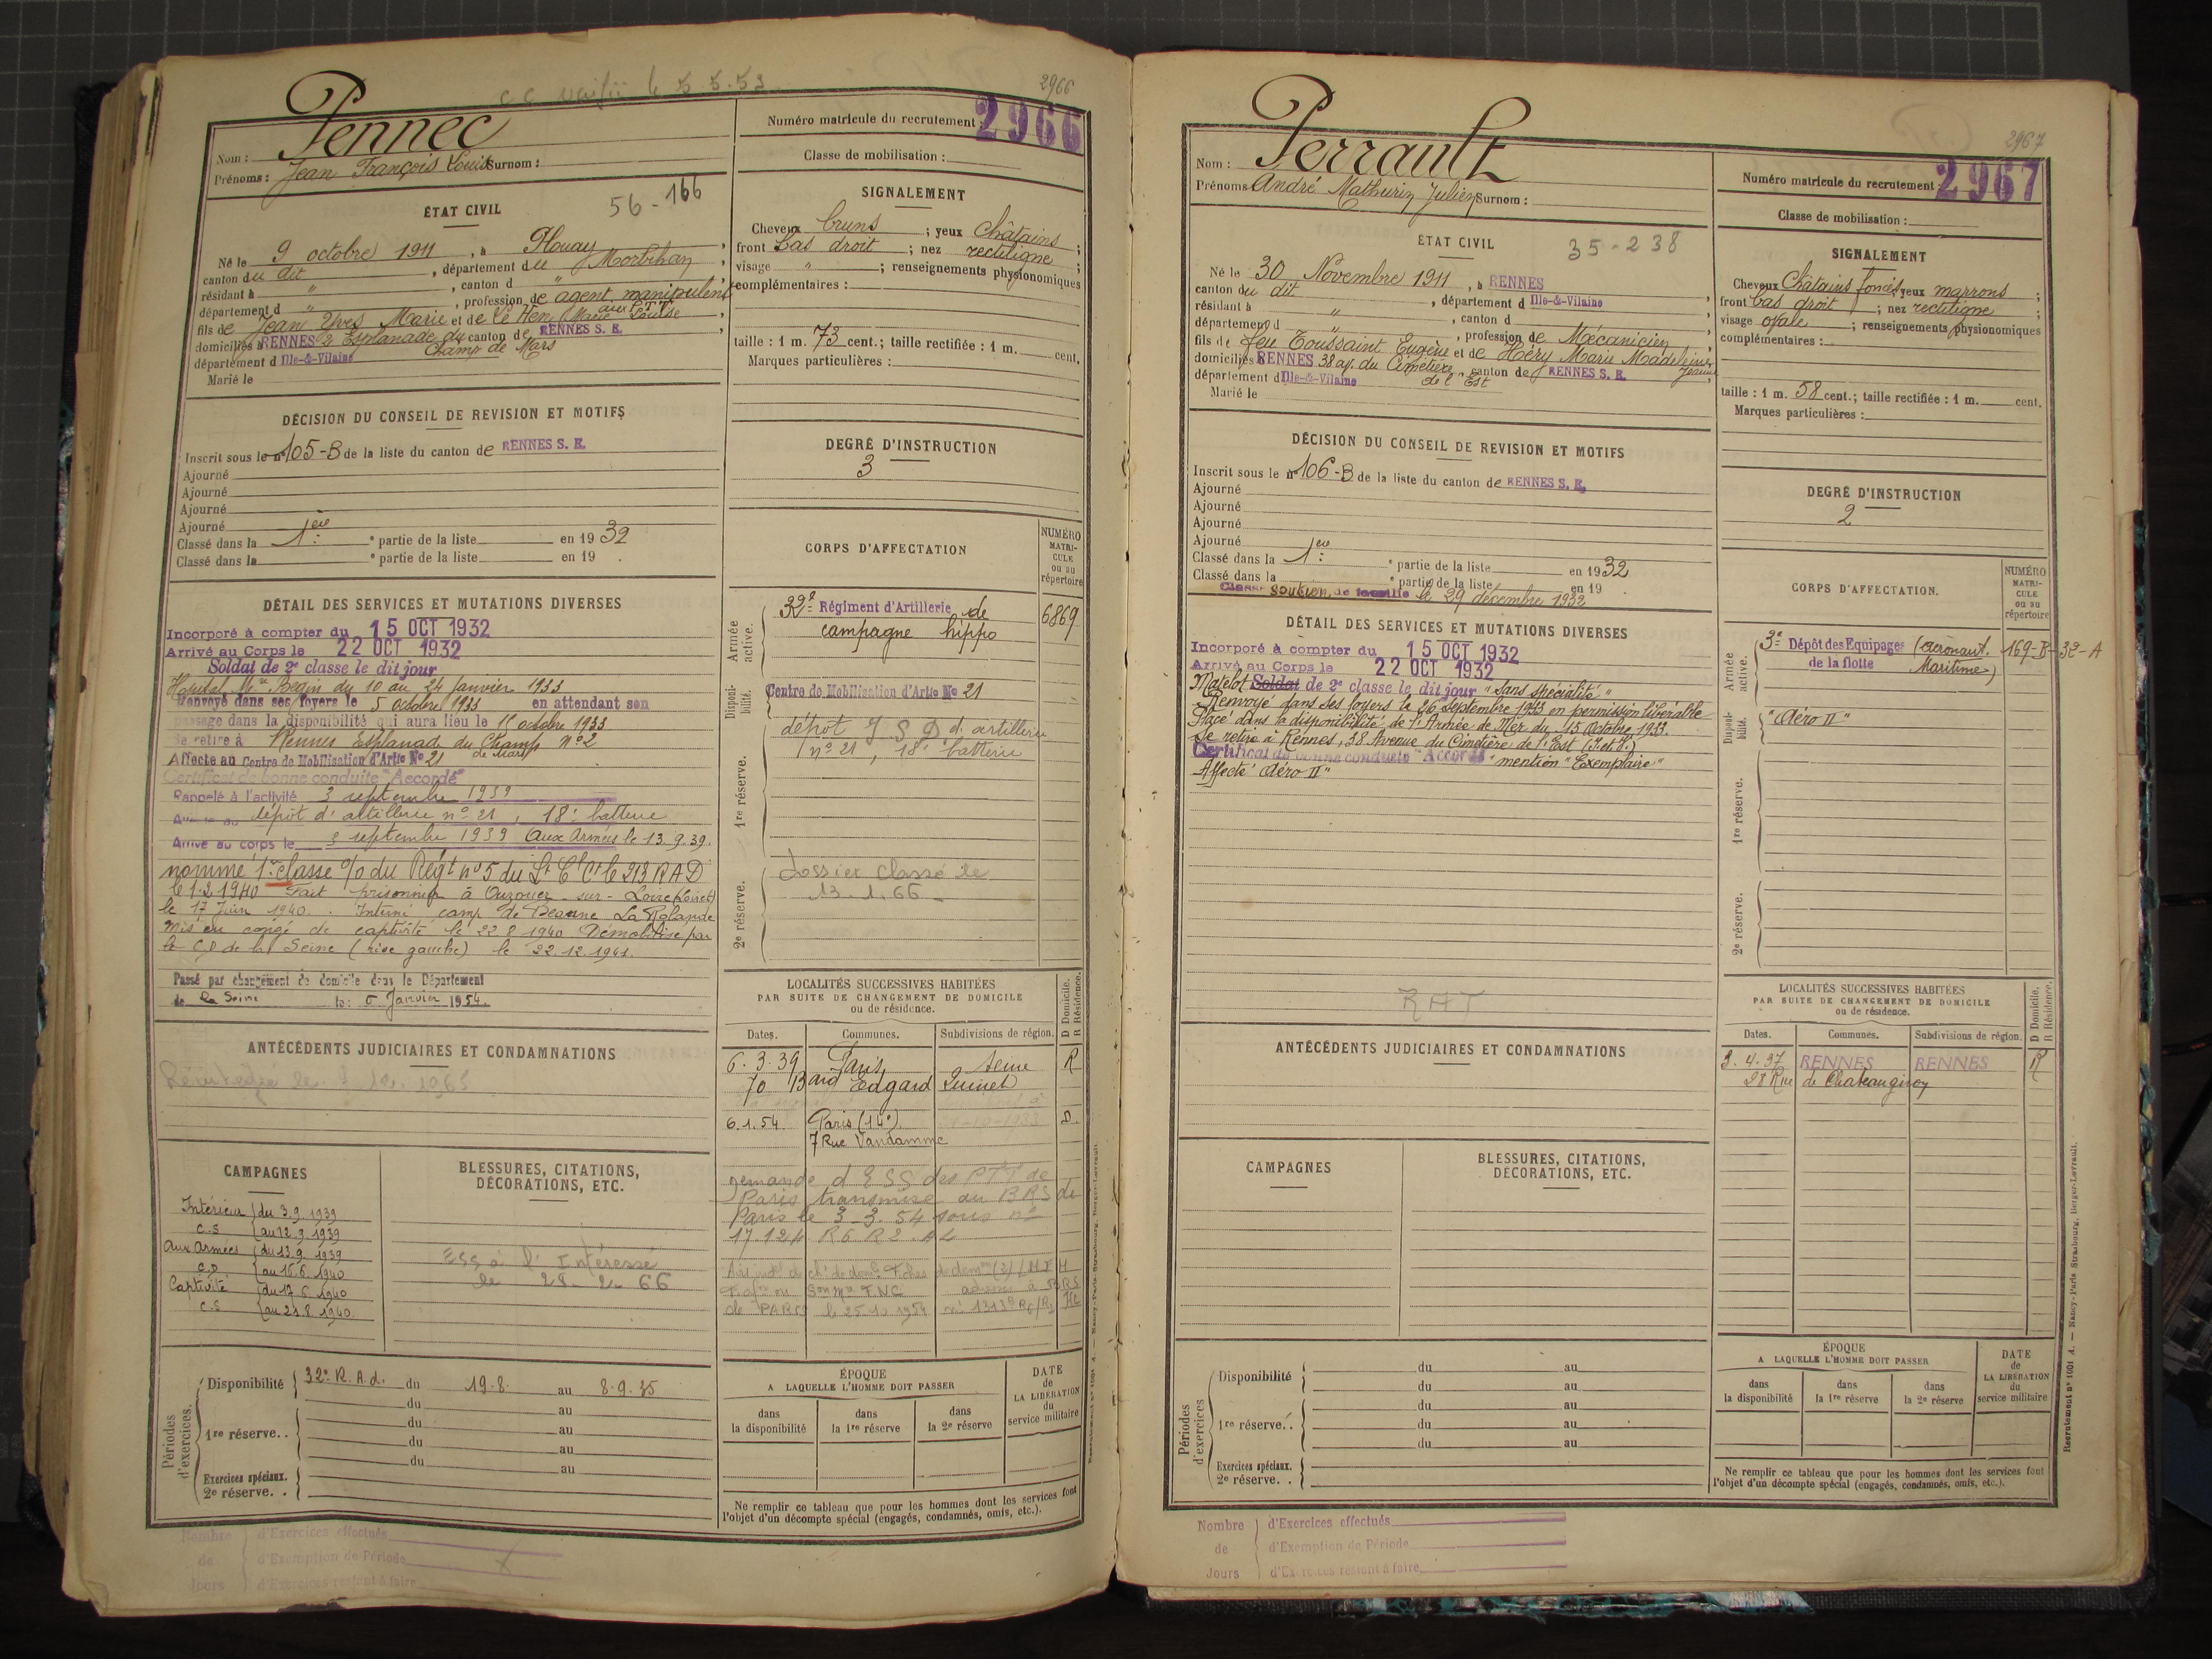 c c vérifié le 5.5.53
2966
Nom : Pennec
Prénoms : Jean François Louis Surnom :
Numéro matricule du recrutement : 2966
Classe de mobilisation :
ÉTAT CIVIL
56-166
Né le 9 octobre 1911, à Plouay,
canton du dit, département du Morbihan,
résidant à ", canton d "
département d ", profession de agent manipulant
aux PTT
fils de Jean Yves Marie et de Le Hen Marie Louise
domiciliés à RENNES 2 Esplanade du canton de RENNES S. E.
Champ de Mars
département d Ille-&-Vilaine
Marié le
SIGNALEMENT
Cheveux bruns ; yeux châtains ;
front bas droit ; nez rectiligne ;
visage " ; renseignements physionomiques
complémentaires :
taille : 1 m. 73 cent.; taille rectifiée : 1 m. cent.
Marques particulières :
DÉCISION DU CONSEIL DE REVISION ET MOTIFS
Inscrit sous le n° 105-B de la liste du canton de RENNES S. E.
Ajourné
Ajourné
Ajourné
Ajourné
Classé dans la 1ère partie de la liste en 1932
Classé dans la e partie de la liste en 19 .
DEGRÉ D'INSTRUCTION
3
DÉTAIL DES SERVICES ET MUTATIONS DIVERSES
Incorporé à compter du 15 OCT 1932
Arrivé au Corps le 22 OCT 1932
Soldat de 2e classe le dit jour
Hopital Mre Begin du 10 au 24 Janvier 1933
Renvoyé dans ses foyers le 5 octobre 1933 en attendant son
passage dans la disponibilité qui aura lieu le 15 octobre 1933
Se retire à Rennes Esplanad du Champ n° 2
de Mars
Affecté au Centre de Mobilisation d'Artie No 21
Certificat de bonne conduite "Accordé"
Rappelé à l'activité 3 septembre 1939
dépot d'artillerie n° 21, 18e batterie
Arrivé au corps le 3 septembre 1939 Aux Armées le 13.9.39.
nommé 1re classe o/o du Régt n° 5 du Lt Cl Ct le 213 RAD
le 1.2.1940 Fait prisonnier à Ouzouer-sur-Loire (Loiret)
le 17 Juin 1940. Interné camp de Beaune La Rolande
Mis en congé de captivité le 22 8 1940 Démobilisé par
le CD de la Seine (rive gauche) le 22.12.1941.
Passé par changement de domicile dans le Département
de la Seine le: 6 Janvier 1954.
CORPS D'AFFECTATION
NUMÉRO MATRICULE ou au répertoire
Armée active.
32e Régiment d'Artillerie de
campagne hippo
6869
Disponibilité.
Centre de Mobilisation d'Artie No 21
1re réserve.
dépot J S D d'artillerie
n° 21, 18e batterie
2e réserve.
Dossier classé le
13.1.66
ANTÉCÉDENTS JUDICIAIRES ET CONDAMNATIONS
LOCALITÉS SUCCESSIVES HABITÉES
PAR SUITE DE CHANGEMENT DE DOMICILE
ou de résidence.
D Domicile.
R Résidence.
Dates. Communes. Subdivisions de région.
6.3.39 Paris Seine R
70 Bard Edgard Quinet
6.1.54 Paris (14e) D.
7 Rue Vandamme
demande d'ESS des PTT de
Paris transmise au BRS de
Paris le 3-3.54 sous n°
CAMPAGNES
Intérieur du 3.9.1939
C.S au 12.9.1939
Aux Armées du 13.9.1939
C.D au 16.6.1940
Captivité du 17.6.1940
C.S au 21.8.1940
BLESSURES, CITATIONS,
DÉCORATIONS, ETC.
ESS à l'Intéressé
le 28-2-66
Périodes d'exercices.
Disponibilité 32e R.A.d. du 19.8. au 8.9.35
du au
1re réserve. . du au
du au
du au
Exercices spéciaux.
2e réserve. .
ÉPOQUE
A LAQUELLE L'HOMME DOIT PASSER
dans la disponibilité
dans la 1re réserve
dans la 2e réserve
DATE de LA LIBÉRATION du service militaire
Ne remplir ce tableau que pour les hommes dont les services font
l'objet d'un décompte spécial (engagés, condamnés, omis, etc.).
Nombre d'Exercices effectués
de d'Exemption de Période
Jours d'Exercices restant à faire
2967
Nom : Perrault
Prénoms André Mathurin Julien Surnom :
Numéro matricule du recrutement : 2967
Classe de mobilisation :
ÉTAT CIVIL
35-238
Né le 30 Novembre 1911, à RENNES
canton du dit, département d Ille-&-Vilaine
résidant à ", canton d
département d ", profession de Mécanicien
fils de feu Toussaint Eugène et de Héry Marie Madeleine
Jeanne
domiciliés RENNES 38 av. du Cimetière canton de RENNES S. E.
de l'Est
département d Ille-&-Vilaine
Marié le
SIGNALEMENT
Cheveux Châtains foncés yeux marrons ;
front bas droit ; nez rectiligne ;
visage ovale ; renseignements physionomiques
complémentaires :
taille : 1 m. 58 cent.; taille rectifiée : 1 m. cent.
Marques particulières :
DÉCISION DU CONSEIL DE REVISION ET MOTIFS
Inscrit sous le n° 106-B de la liste du canton de RENNES S. E.
Ajourné
Ajourné
Ajourné
Ajourné
Classé dans la 1ère partie de la liste en 1932
Classé dans la e partie de la liste en 19 .
Classé soutien de famille le 29 décembre 1932
DEGRÉ D'INSTRUCTION
2
DÉTAIL DES SERVICES ET MUTATIONS DIVERSES
Incorporé à compter du 15 OCT 1932
Arrivé au Corps le 22 OCT 1932
Matelot Soldat de 2e classe le dit jour "sans spécialité"
Renvoyé dans ses foyers le 26 septembre 1933 en permission libérable
Placé dans la disponibilité de l'Armée de Mer du 15 Octobre 1933.
Se retire à Rennes, 38 Avenue du Cimetière de l'Est (I.et.V.)
Certificat de bonne conduite "Accordé" mention "Exemplaire"
Affecté "Aéro II"
RHT
CORPS D'AFFECTATION.
NUMÉRO MATRICULE ou au répertoire
Armée active.
3e Dépôt des Equipages (aéronaut. 169-B-33-A
de la flotte Maritime)
Disponibilité.
"Aéro II"
1re réserve.
2e réserve.
ANTÉCÉDENTS JUDICIAIRES ET CONDAMNATIONS
LOCALITÉS SUCCESSIVES HABITÉES
PAR SUITE DE CHANGEMENT DE DOMICILE
ou de résidence.
D Domicile.
R Résidence.
Dates. Communes. Subdivisions de région.
3.4.37 RENNES RENNES R
28 Rue de Chateaugiroy
CAMPAGNES
BLESSURES, CITATIONS,
DÉCORATIONS, ETC.
Périodes d'exercices
Disponibilité du au
du au
du au
1re réserve. . du au
du au
Exercices spéciaux.
2e réserve. .
ÉPOQUE
A LAQUELLE L'HOMME DOIT PASSER
dans la disponibilité
dans la 1re réserve
dans la 2e réserve
DATE de LA LIBÉRATION du service militaire
Ne remplir ce tableau que pour les hommes dont les services font
l'objet d'un décompte spécial (engagés, condamnés, omis, etc.).
Recrutement n° 1001 A. — Nancy-Paris-Strasbourg, Berger-Levrault.
Nombre d'Exercices effectués
de d'Exemption de Période
Jours d'Exercices restent à faire